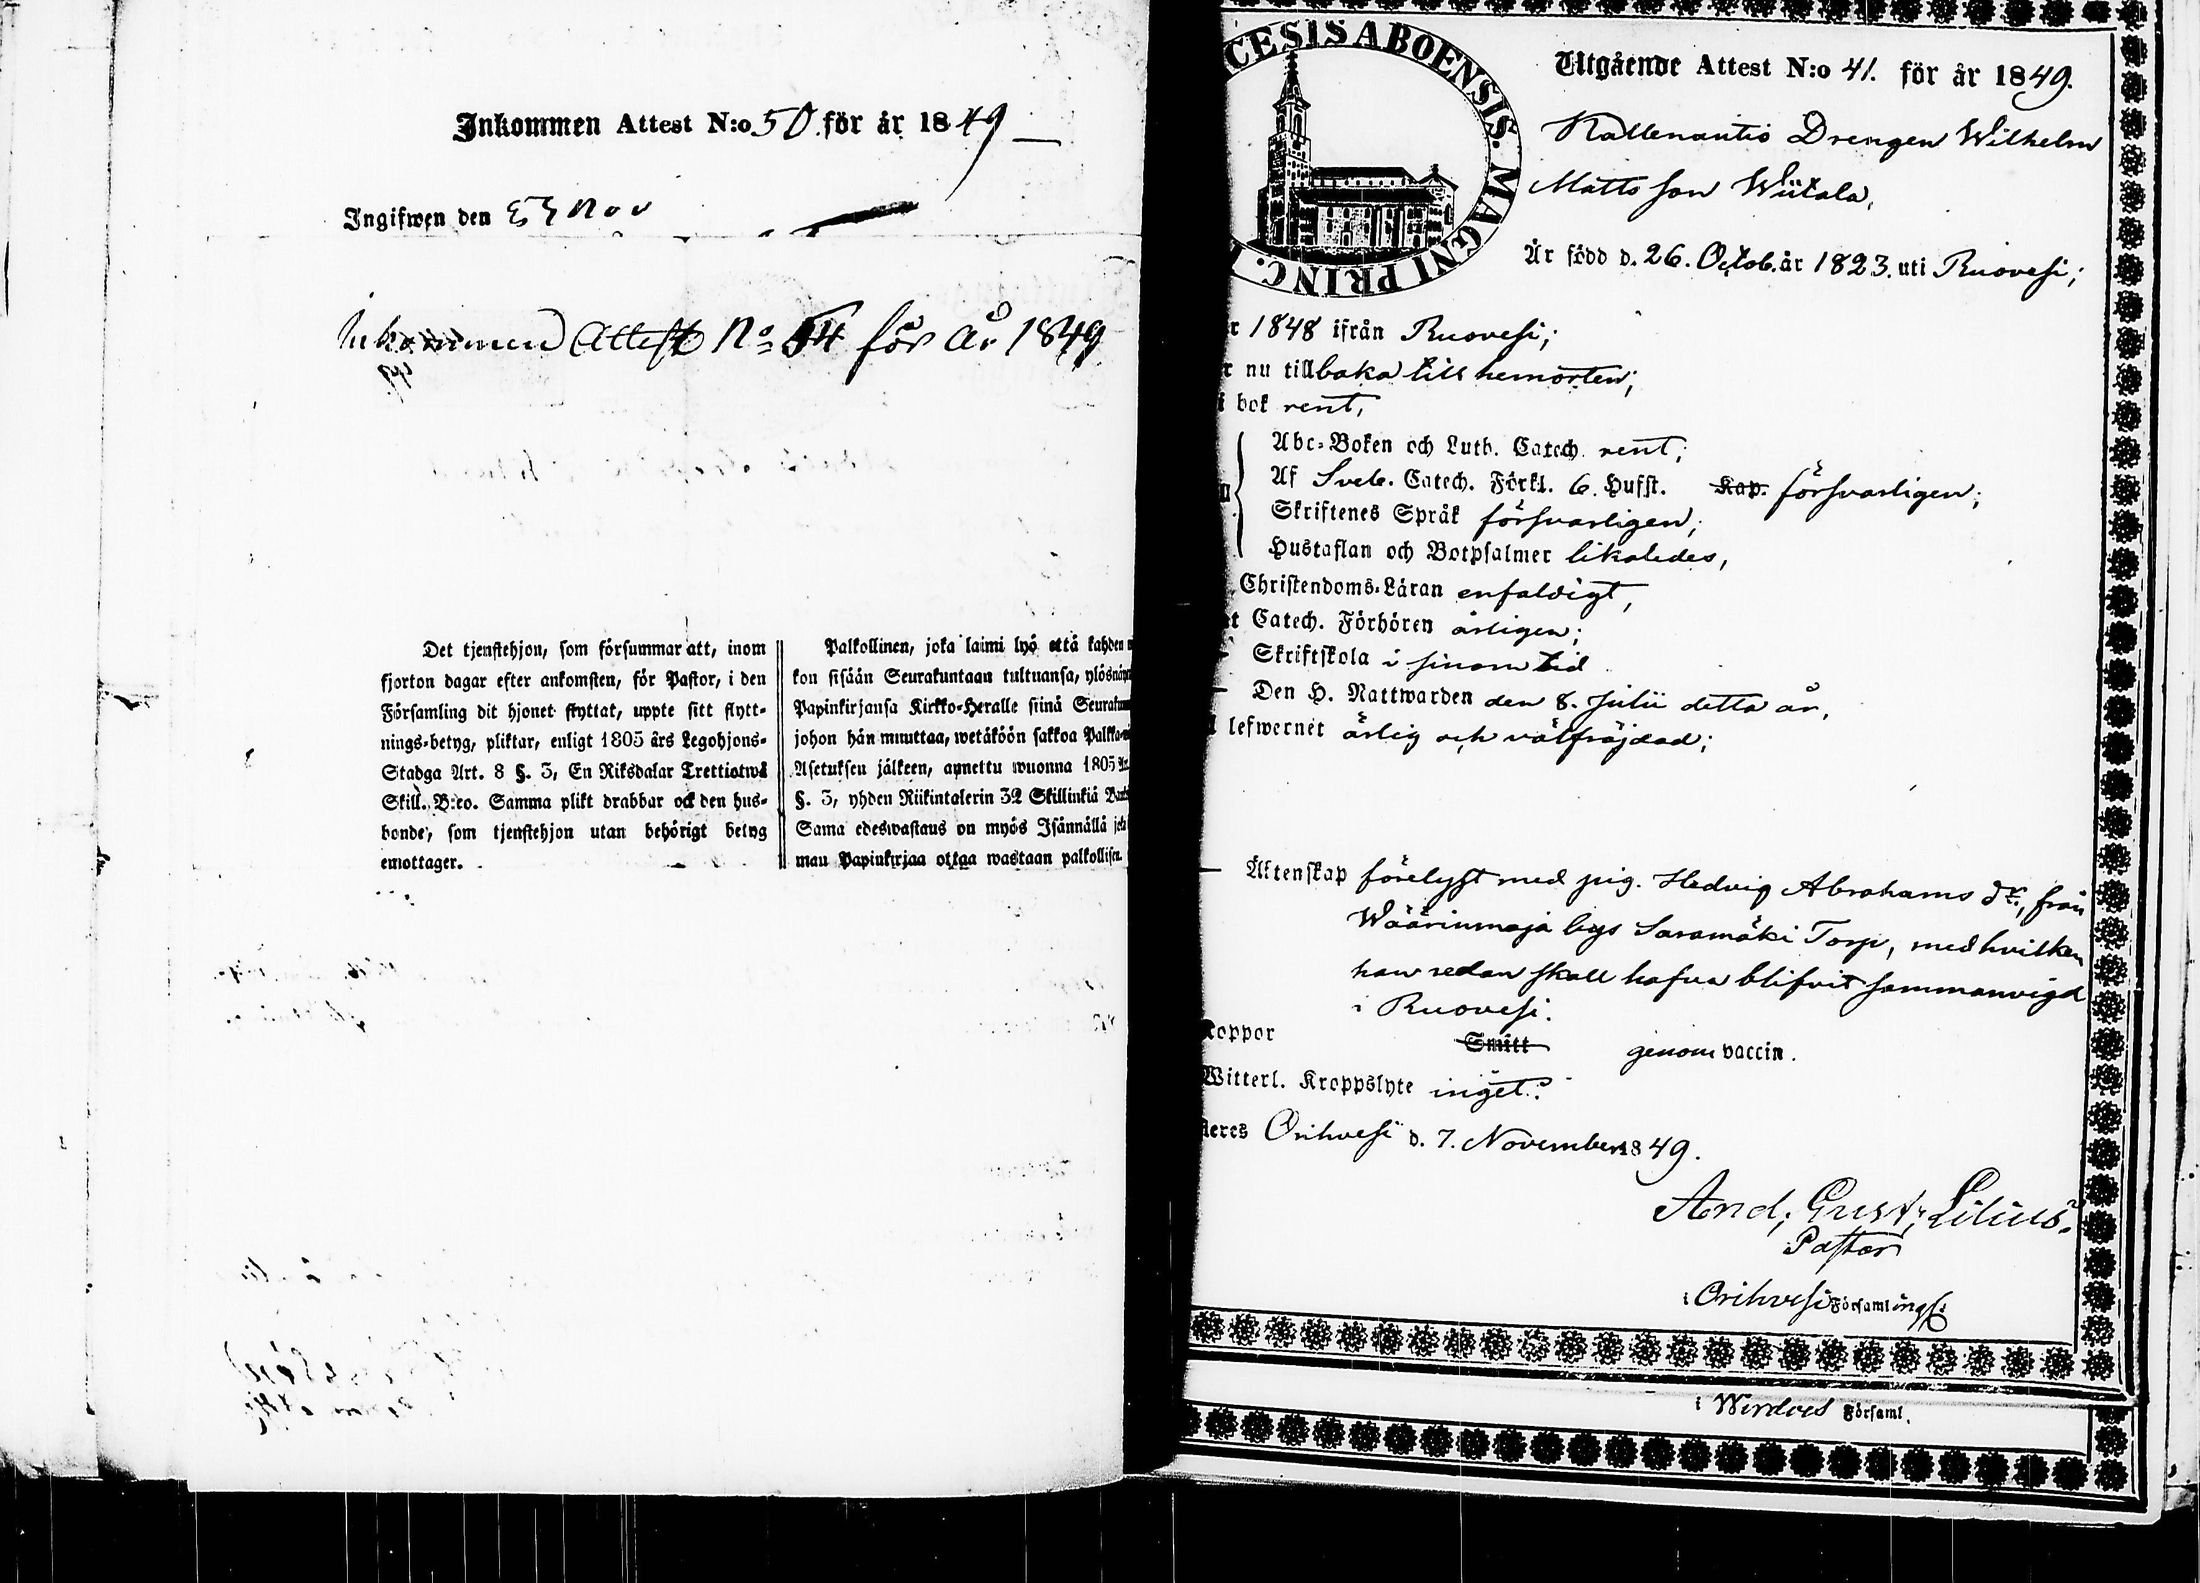 Inkommen Attest N:o 50 för år 1849
Ingifwen den Nov
Inkommen Attest No 54 för år 1849
Det tjenstehjon, som försummar att, inom
fjorton dagar efter ankomsten, för Pastor, i den
Församling dit hjonet flyttat, uppte sitt flytt-
nings-betyg, pliktar, enligt 1805 års Legohjons-
Stadga Art. 8 §. 3, En Riksdalar Trettiotwå
Skill. B:co. Samma plikt drabbar ock den hus-
bonde, som tjenstehjon utan behörigt betyg
emottager.
Palkollinen, joka laimi lyö että kahden
kon sisään Seurakuntaan tultuansa, ylösnäyt
Papinkirjansa Kirkko-Heralle siinä Seurakun
johon hän muuttaa, wetäköön sakkoa Palkka-
Asetuksen jälkeen, annettu wuonna 1805 Ar.
§. 3, yhden Riikintalerin 32 Skillinkiä Banko
Sama edeswastaus on myös Isännällä jok
man Papinkirjaa ottaa wastaan palkollisen.
CESIS ABOENSIS. MAGNI PRINC.
Utgående Attest N:o 41. för år 1849.
Kallenautio Drengen Wilhelm
Mattsson Wiitala,
Är född d. 26. Octob. år 1823. uti Ruovesi;
r 1848 ifrån Ruovesi;
r nu tillbaka till hemorten;
i bok rent,
Abc-Boken och Luth. Catech. rent;
Af Sveb. Catech. Förkl. 6. Hufst. Kap. försvarligen;
Skriftenes Språk försvarligen,
Hustaflan och Botpsalmer likaledes,
Christendoms-Läran enfaldigt,
et Catech. Förhören årligen;
Skriftskola i sinom tid
Den H. Nattwarden den 8. Julii detta år,
lefwernet ärlig och välfräjdad;
Äktenskap förelyst med pig. Hedvig Abrahams dr., från
Wäärinmaja bys Saramäki Torp, med hvilken
han redan skall hafva blifvit sammanvigd
i Ruovesi.
Koppor Smitt genom vaccin.
Witterl. Kroppslyte inget.
steres Orihvesi d. 7. November 1849.
And. Gust. Lilius.
Pastor
i Orihvesi Församlings
i Wirdois Församl.